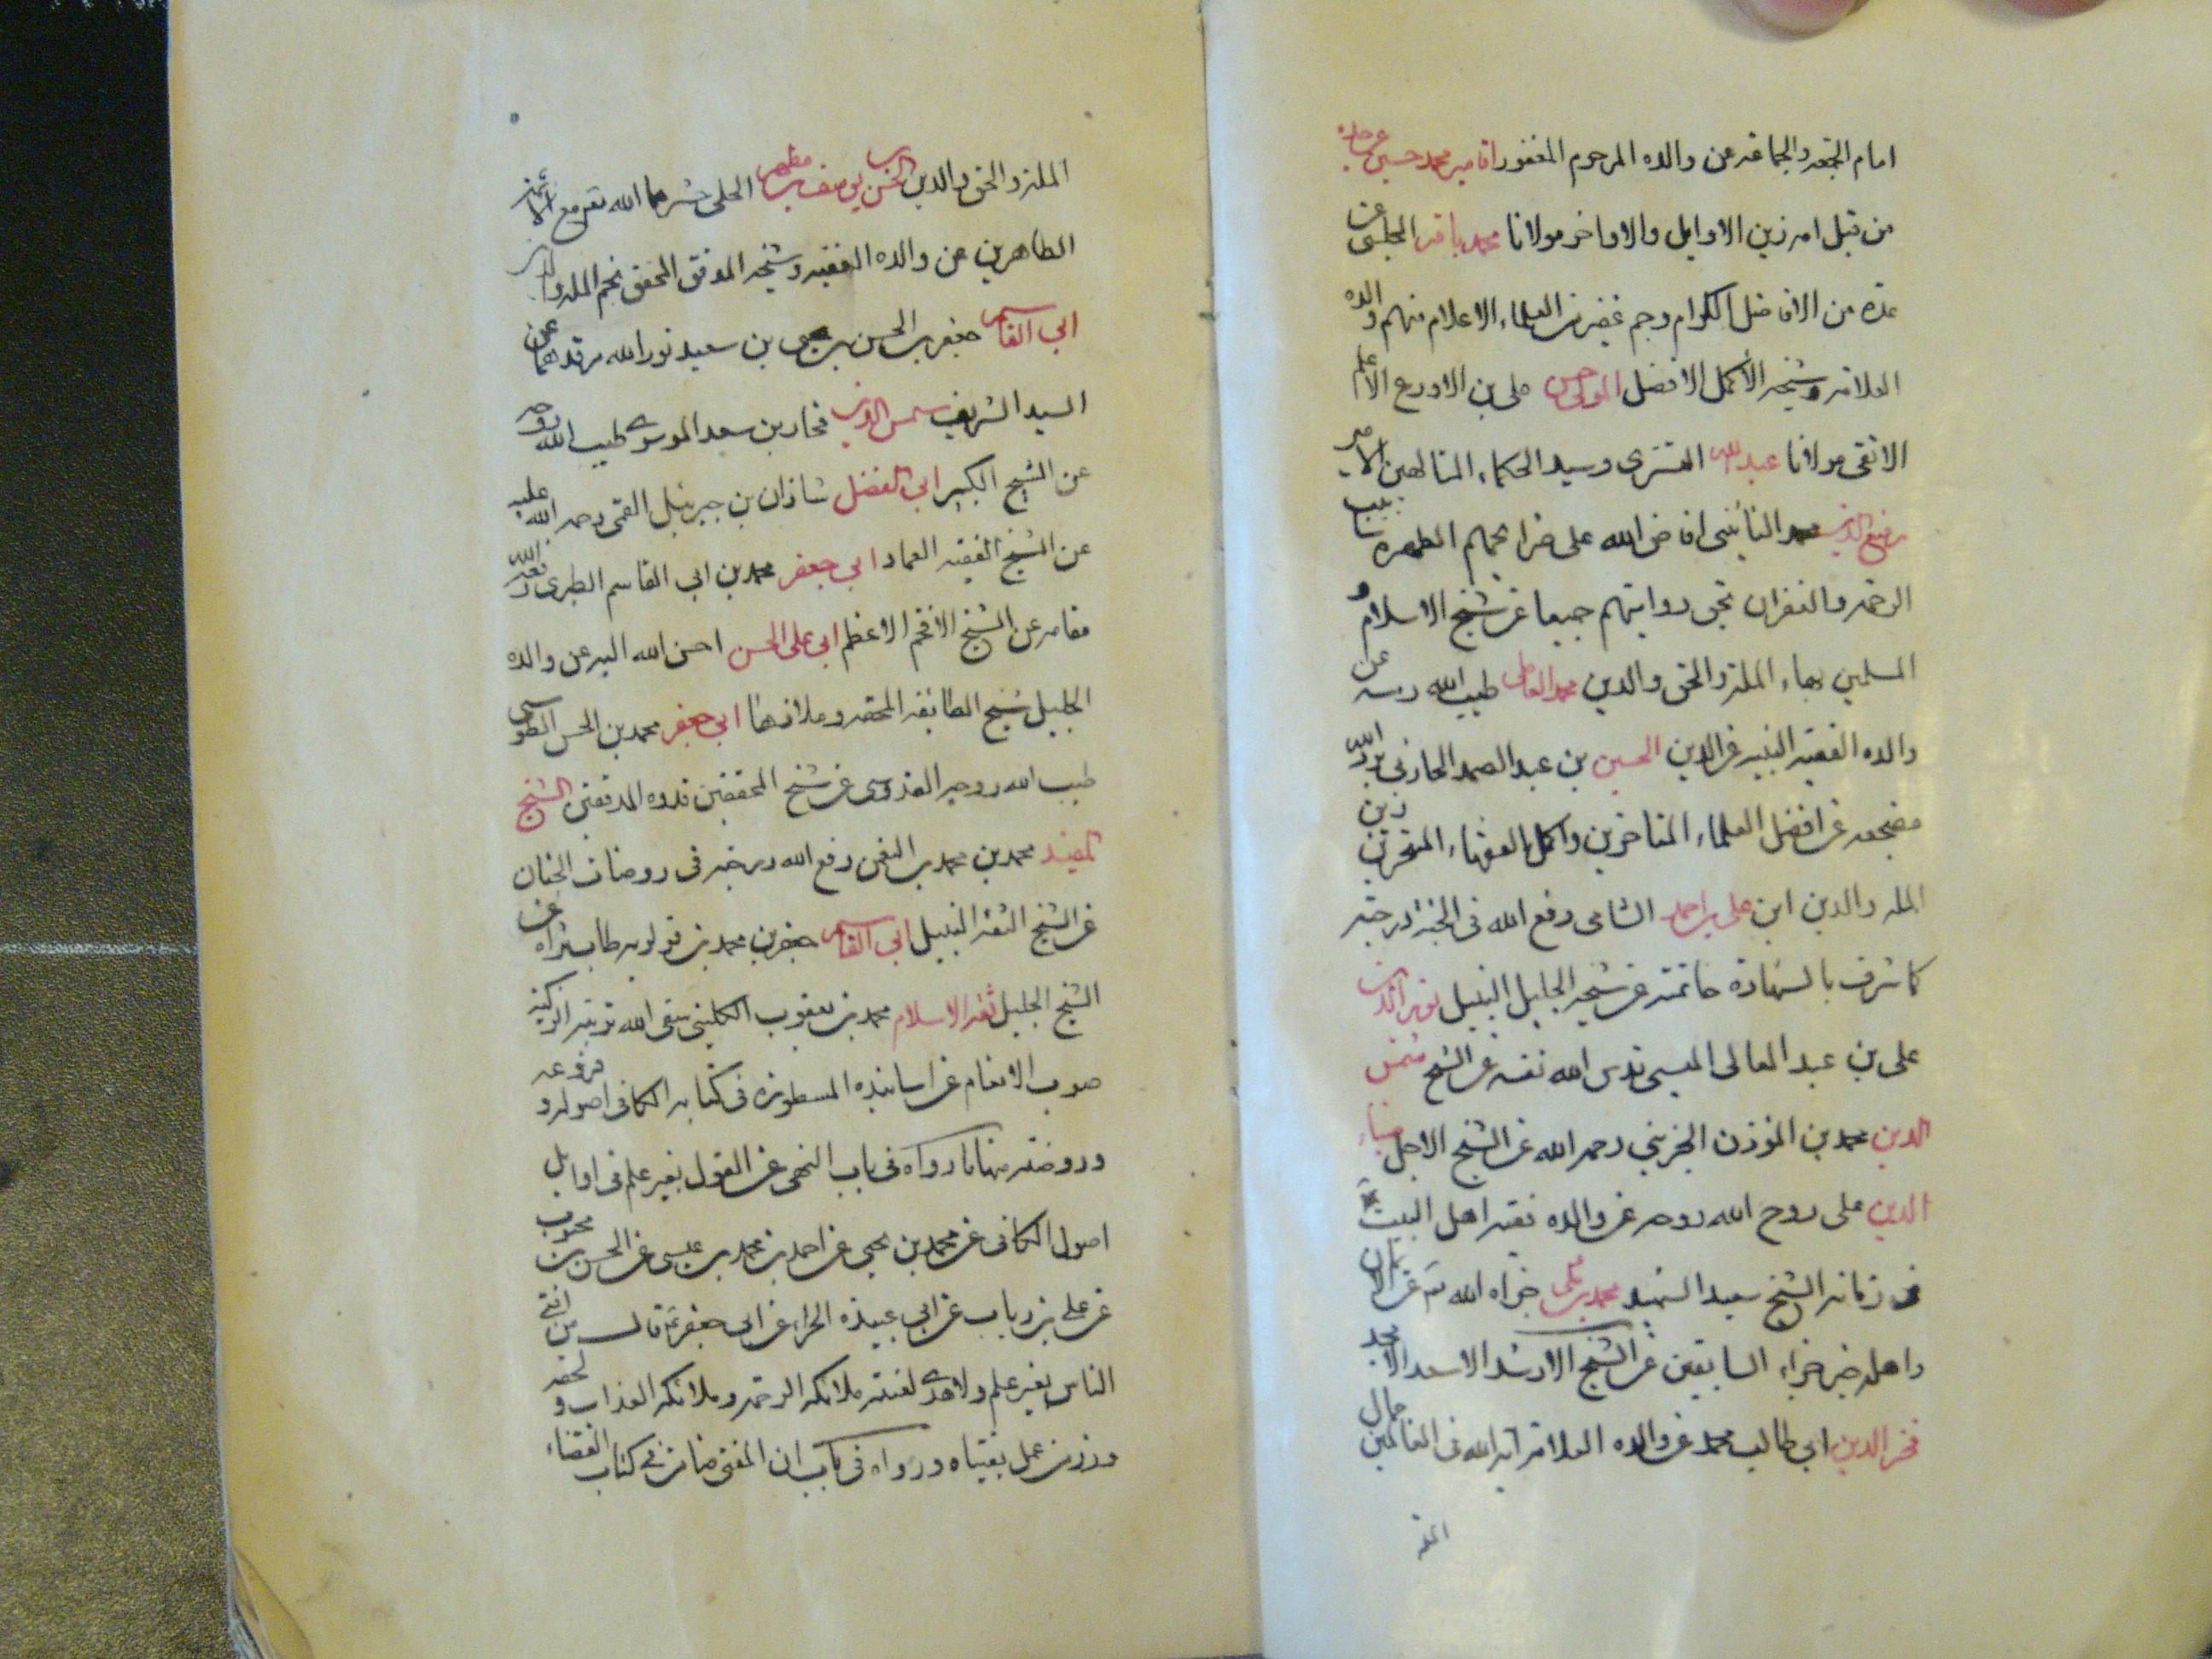 امام الجمعه والجماعه عن والده المرحوم المغفور اقا مير محمد حسين عن جده
من قبل امه زين الاوايل والاواخر مولانا محمد باقر المجلسى عن
عدة من الافاضل الكرام وجم غفير من العلماء الاعلام منهم والده
العلامه وشيخه الأكمل الافضل المولى حسن على بن الاورع الاعلم
الاتقى مولانا عبد الله التسترى وسيد الحكماء المتالهين الامير
رفيع الدين محمد النائينى افاض الله على ضرايحهم المطهره شابيب
الرحمه والغفران بحق روايتهم جميعا عن شيخ الاسلام و
المسلمين بهاء الملة والحق والدين محمد العاملى طيب الله رمسه عن
والده الفقيه النبيه عز الدين الحسين بن عبد الصمد الحارثى نور الله
مضجعه عن افضل العلماء المتاخرين واكمل الفقهاء المتبحرين زين
المله والدين ابن على بن احمد الشامى رفع الله فى الجنة درجته
كما شرف بالشهادة خاتمته عن شيخه الجليل النبيل نور الدين
على بن عبد العالى الميسى قدس الله نفسه عن الشيخ شمس
الدين محمد بن الموذن الجزينى رحمه الله عن الشيخ الاجل ضياء
الدين على روح الله روحه عن والده فقيه اهل البيت
فى زمانه الشيخ سعيد الشهيد محمد بن مكى جزاه الله عن الايمان
واهله خير جزاء السابقين عن الشيخ الارشد الاسعد الامجد
فخر الدين ابى طالب محمد عن والده العلامه آية الله فى العالمين جمال
المله
الملة والحق والدين الحسن بن يوسف بن مطهر الحلى حشرهما الله تعم مع الائمة
الطاهرين عن والده الفقيه وشيخه المدقق المحقق نجم المله والدين
ابى القاسم جعفر بن الحسن بن يحيى بن سعيد نور الله مرقدهما عن
السيد الشريف شمس الدين فخار بن سعد الموسوى طيب الله روحه
عن الشيخ الكبير ابى الفضل شاذان بن جبرئيل القمى رحمه الله عليه
عن الشيخ الفقيه العماد ابى جعفر محمد بن ابى القاسم الطبرى رفع الله
مقامه عن الشيخ الافخم الاعظم ابى على الحسن احسن الله اليه عن والده
الجليل شيخ الطائفه المحقه وملاذها ابى جعفر محمد بن الحسن الطوسى
طيب الله روحه القدوسى عن شيخ المحققين قدوه المدققين الشيخ
المفيد محمد بن محمد بن النعمن رفع الله درجته فى روضات الجنان
عن الشيخ الثقة النبيل ابى القاسم جعفر بن محمد بن قولويه طاب ثراه عن
الشيخ الجليل ثقة الاسلام محمد بن يعقوب الكلينى سقى الله تربته الزكيه
صوب الانعام عن اسانيذه المسطورة فى كتابه الكافى اصوله وفروعه
وروضته منها ما رواه فى باب النهى عن القول بغير علم فى اوايل
اصول الكافى عن محمد بن يحيى عن احمد بن محمد بن عيسى عن الحسن بن محبوب
عن على بن رياب عن ابى عبيدة الحذاء عن ابى جعفر ع قال من افتى
الناس بغير علم ولا هدى لعنته ملائكه الرحمة وملائكه العذاب ولحقه
وزر من عمل بفتياه ورواه فى باب ان المفتى ضامن فى كتاب القضاء